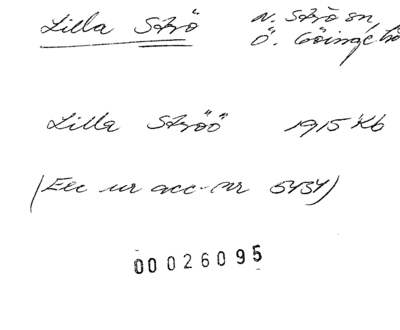 Lilla Strö N. Strö sn,
Ö. Göinge hd
Lilla Ströö 1915 Kb
(Exc ur acc-nr 5434)
00026095